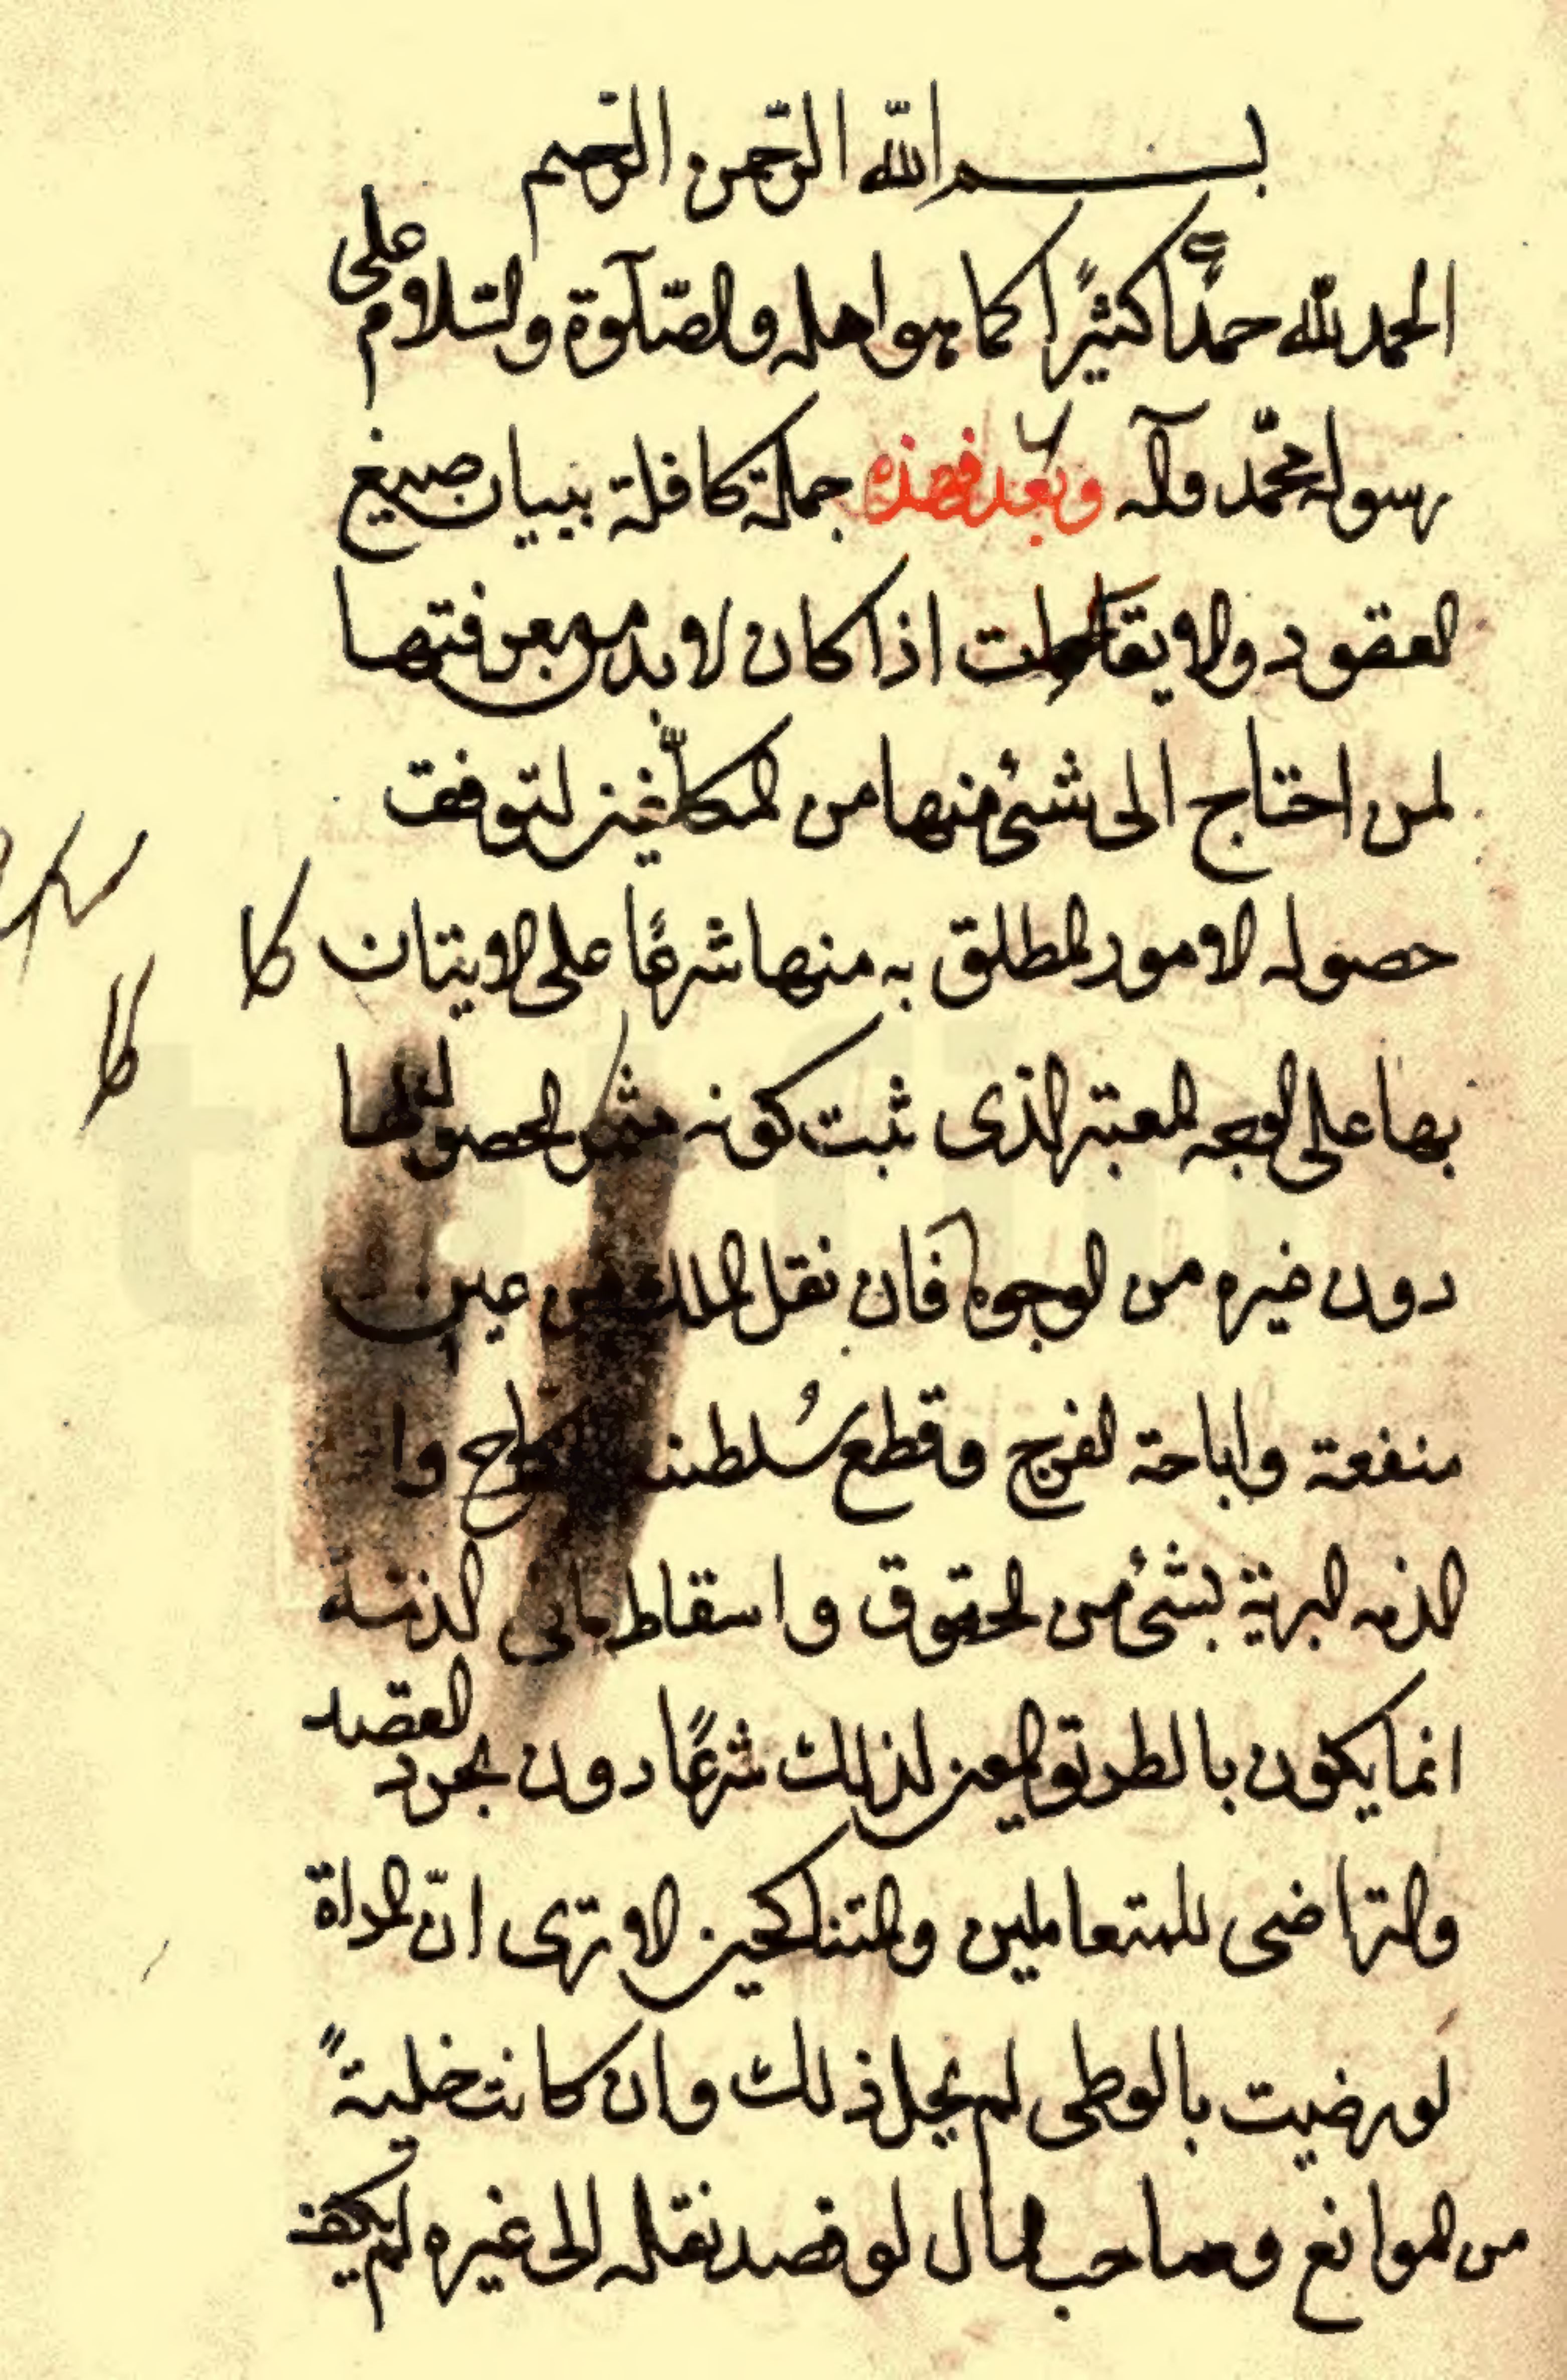 بسم الله الرحمن الرحيم
الحمد لله حمدًا كثيرًا كما هو اهله والصّلوٓة والسّلام على
رسوله محمّد وآله وبعد فهذه جملة كافلة ببيان صيغ
العقود والايقاعات اذا كان لا بد من معرفتها
لمن احتاج الى شئ منها من المكلّفين لتوقف
حصول الامور المطلق به منها شرعًا على الاتيان
بها على الوجه المعتبر الذى ثبت كونه مثمر الحصولها
دون غيره من الوجوه فان نقل الملك من عين
منفعة واباحة الفرج وقطع سُلطنة النكاح وا
الذمه البرية بشئ من الحقوق واسقاط ما فى الذمة
انما يكون بالطريق المعين لذلك شرعًا دون مجرد القصد
والتراضى للمتعاملين والمتناكحين الا ترى انّ المراة
لو رضيت بالوطى لم يحل ذلك وان كانت خليةً
من الموانع وصاحب المال لو قصد نقله الى غيره لم يكف